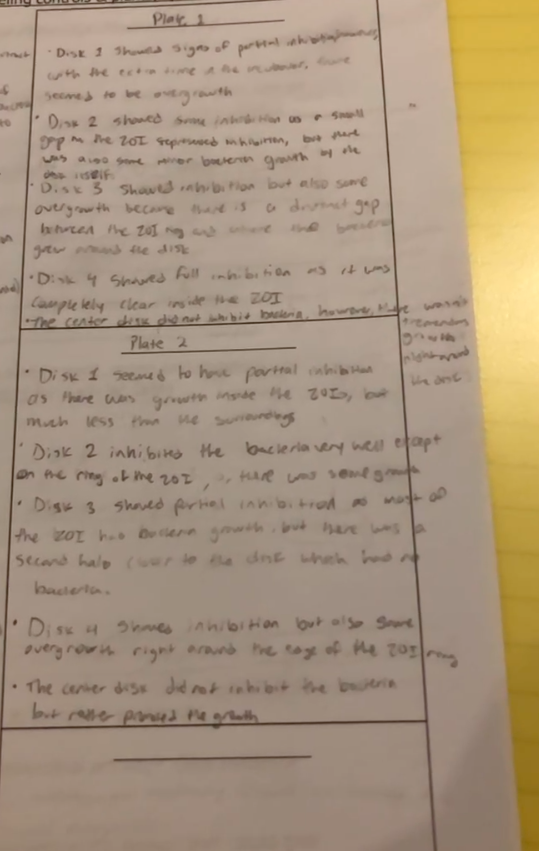 Plate 1
• Disk 1 showed signs of partial inhibition, however,
with the extra time in the incubator, there
seemed to be overgrowth
• Disk 2 showed some inhibition as a small
gap in the ZOI represented inhibition, but there
was also some minor bacteria growth by the
disk itself.
• Disk 3 showed inhibition but also some
overgrowth because there is a distinct gap
between the ZOI ring and where the bacteria
grew around the disk
• Disk 4 showed full inhibition as it was
completely clear inside the ZOI
• The center disk did not inhibit bacteria, however, there wasn't
tremendous
growth
right around
the disk
Plate 2
• Disk 1 seemed to have partial inhibition
as there was growth inside the ZOIs, but
much less than the surroundings
• Disk 2 inhibited the bacteria very well except
on the ring of the ZOI, there was some growth
• Disk 3 showed partial inhibition as most of
the ZOI has bacteria growth, but there was a
second halo closer to the disk which had no
bacteria.
• Disk 4 showed inhibition but also some
overgrowth right around the edge of the ZOI ring
• The center disk did not inhibit the bacteria
but rather promoted the growth